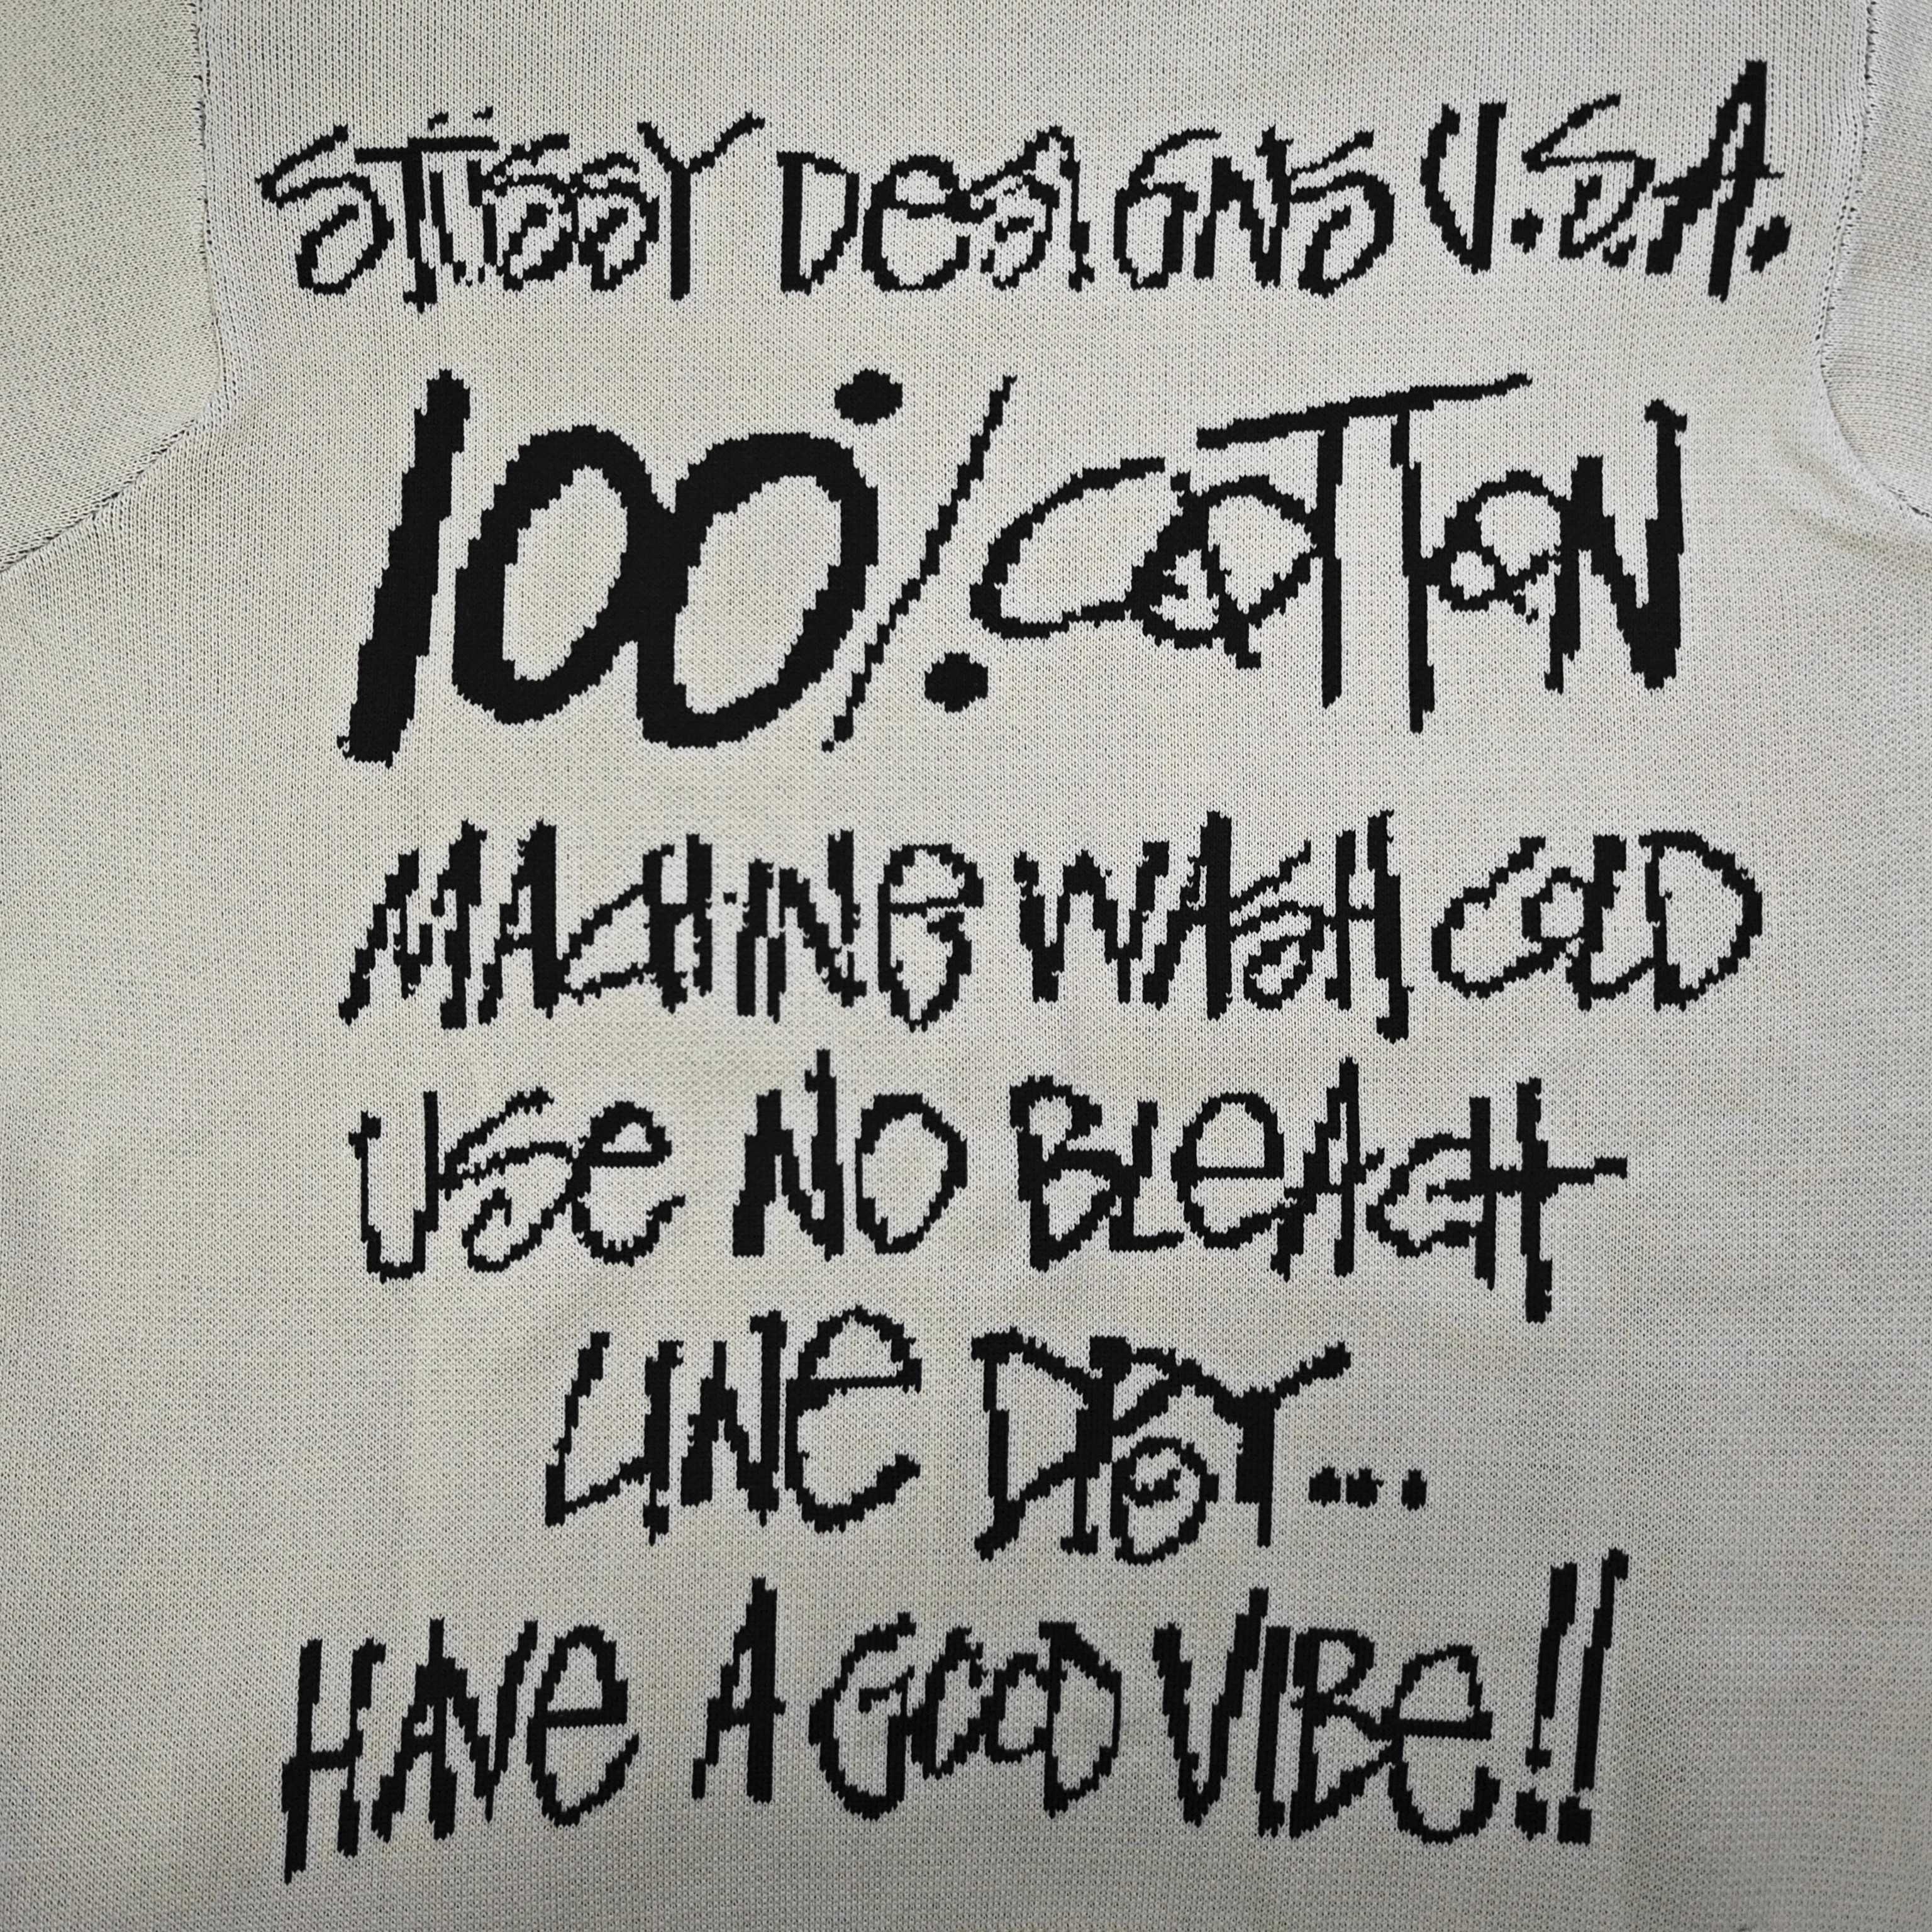 STÜSSY DESIGNS U.S.A.
100% COTTON
MACHINE WASH COLD
USE NO BLEACH
LINE DRY...
HAVE A GOOD VIBE!!